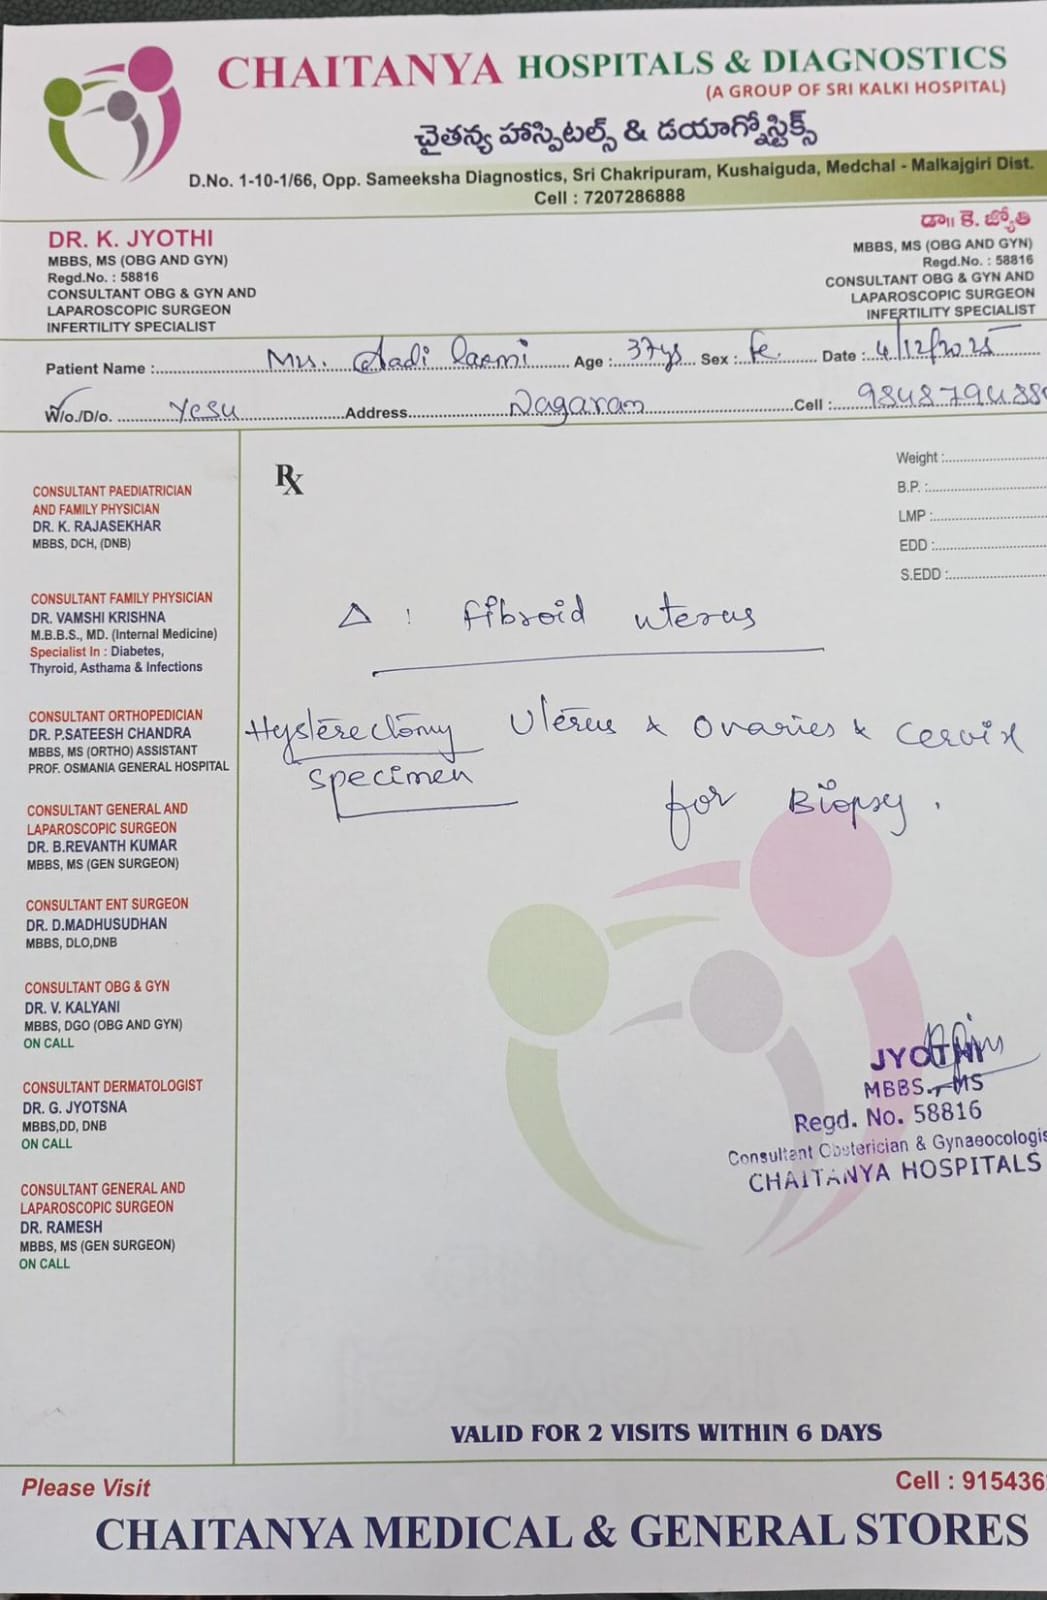 CHAITANYA HOSPITALS & DIAGNOSTICS
(A GROUP OF SRI KALKI HOSPITAL)
చైతన్య హాస్పిటల్స్ & డయాగ్నోస్టిక్స్
D.No. 1-10-1/66, Opp. Sameeksha Diagnostics, Sri Chakripuram, Kushaiguda, Medchal - Malkajgiri Dist.
Cell : 7207286888
DR. K. JYOTHI
MBBS, MS (OBG AND GYN)
Regd.No. : 58816
CONSULTANT OBG & GYN AND
LAPAROSCOPIC SURGEON
INFERTILITY SPECIALIST
డా॥ కె. జ్యోతి
MBBS, MS (OBG AND GYN)
Regd.No. : 58816
CONSULTANT OBG & GYN AND
LAPAROSCOPIC SURGEON
INFERTILITY SPECIALIST
Patient Name : Mrs. Aadi laxmi Age : 37ys Sex : fe Date : 4/12/2025
W/o./D/o. Yesu Address Nagaram Cell : 984879488
Rx
Weight :
B.P. :
LMP :
EDD :
S.EDD :
CONSULTANT PAEDIATRICIAN
AND FAMILY PHYSICIAN
DR. K. RAJASEKHAR
MBBS, DCH, (DNB)
CONSULTANT FAMILY PHYSICIAN
DR. VAMSHI KRISHNA
M.B.B.S., MD. (Internal Medicine)
Specialist In : Diabetes,
Thyroid, Asthama & Infections
CONSULTANT ORTHOPEDICIAN
DR. P.SATEESH CHANDRA
MBBS, MS (ORTHO) ASSISTANT
PROF. OSMANIA GENERAL HOSPITAL
CONSULTANT GENERAL AND
LAPAROSCOPIC SURGEON
DR. B.REVANTH KUMAR
MBBS, MS (GEN SURGEON)
CONSULTANT ENT SURGEON
DR. D.MADHUSUDHAN
MBBS, DLO,DNB
CONSULTANT OBG & GYN
DR. V. KALYANI
MBBS, DGO (OBG AND GYN)
ON CALL
CONSULTANT DERMATOLOGIST
DR. G. JYOTSNA
MBBS,DD, DNB
ON CALL
CONSULTANT GENERAL AND
LAPAROSCOPIC SURGEON
DR. RAMESH
MBBS, MS (GEN SURGEON)
ON CALL
Δ : fibroid uterus
Hysterectomy Uterus & Ovaries & Cervix
specimen
for Biopsy.
JYOTHI
MBBS., MS
Regd. No. 58816
Consultant Obsterician & Gynaeocologis
CHAITANYA HOSPITALS
VALID FOR 2 VISITS WITHIN 6 DAYS
Please Visit
Cell : 915436
CHAITANYA MEDICAL & GENERAL STORES